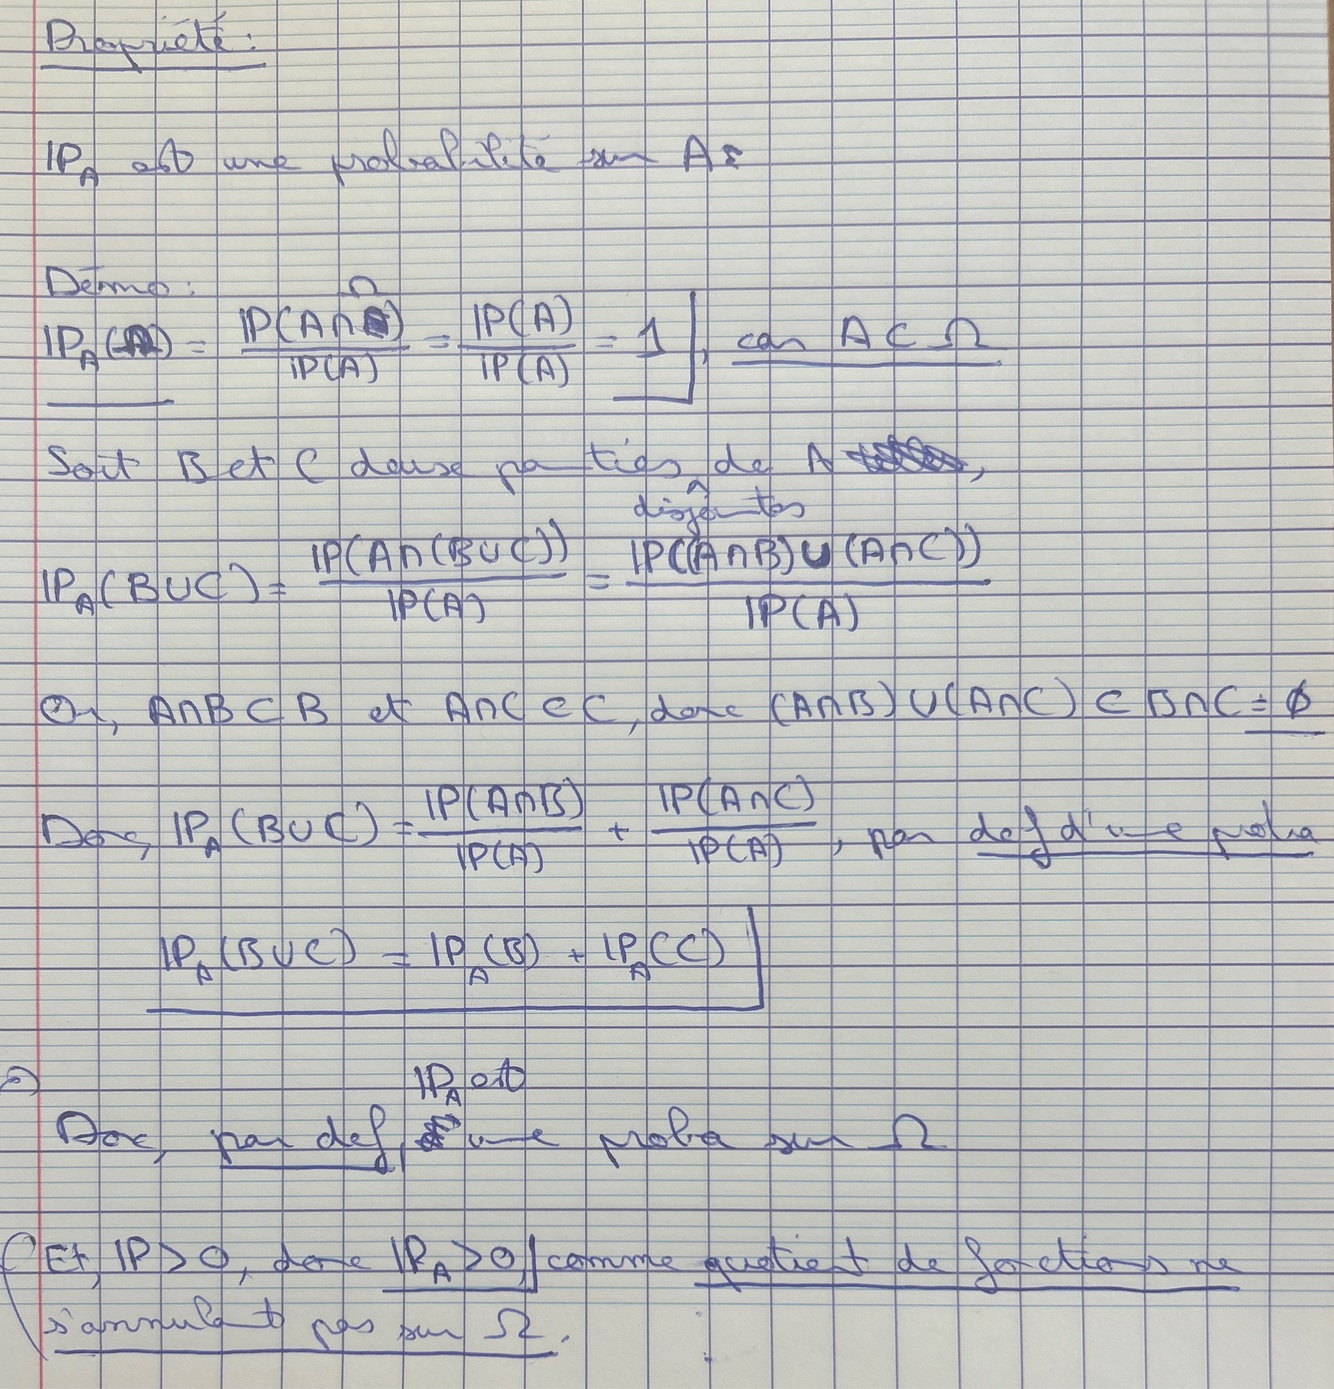 Propriété :
IP_A est une probabilité sur A
Démo :
IP_A(Ω) = IP(A∩Ω)/IP(A) = IP(A)/IP(A) = 1, car A ⊂ Ω
Soit B et C deux parties disjointes de A,
IP_A(B∪C) = IP(A∩(B∪C))/IP(A) = IP((A∩B)∪(A∩C))/IP(A)
Or, A∩B ⊂ B et A∩C ⊂ C, donc (A∩B)∪(A∩C) ⊂ B∩C = ∅
Donc, IP_A(B∪C) = IP(A∩B)/IP(A) + IP(A∩C)/IP(A), par def d'une proba
IP_A(B∪C) = IP_A(B) + IP_A(C)
Donc, par def, IP_A est une proba sur Ω
Et, IP>0, donc IP_A>0, comme quotient de fonctions ne
s'annulant pas sur Ω.